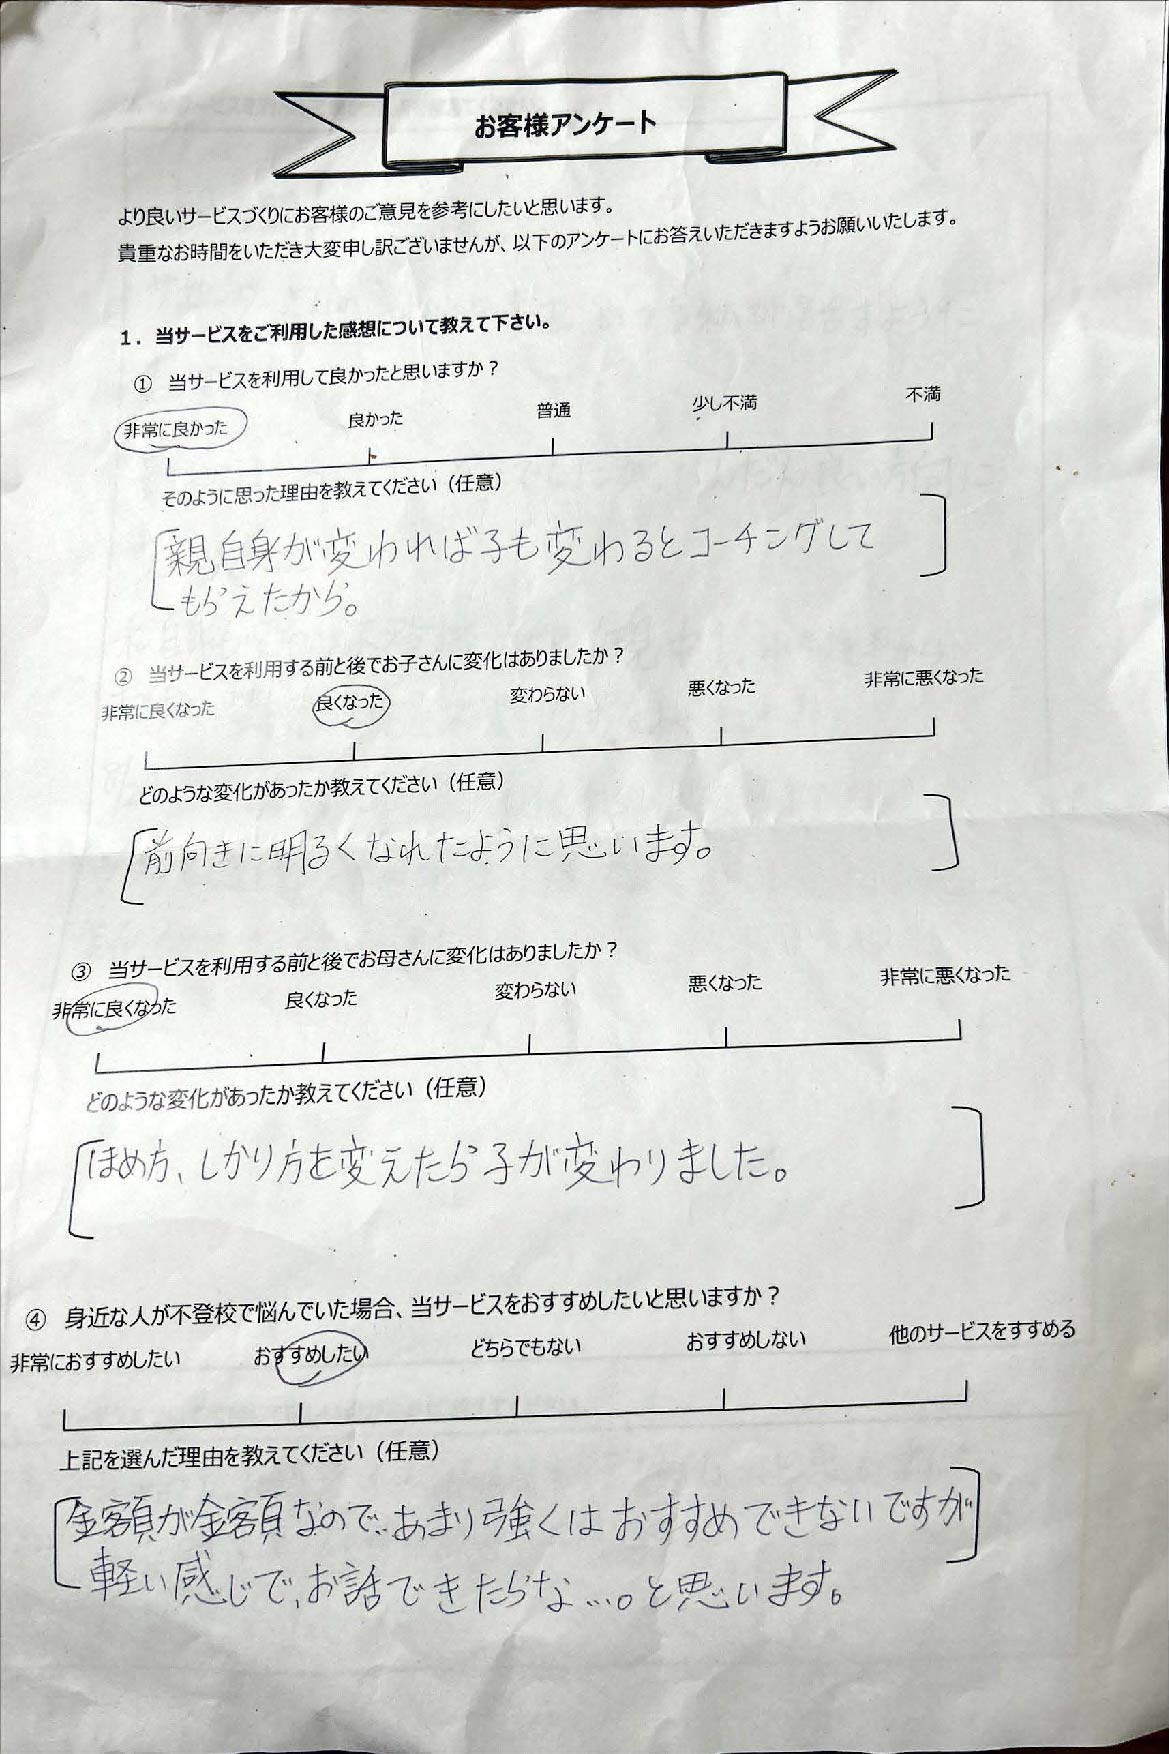 お客様アンケート
より良いサービスづくりにお客様のご意見を参考にしたいと思います。
貴重なお時間をいただき大変申し訳ございませんが、以下のアンケートにお答えいただきますようお願いいたします。
1．当サービスをご利用した感想について教えて下さい。
① 当サービスを利用して良かったと思いますか？
非常に良かった 良かった 普通 少し不満 不満
そのように思った理由を教えてください（任意）
親自身が変われば子も変わるとコーチングして
もらえたから。
② 当サービスを利用する前と後でお子さんに変化はありましたか？
非常に良くなった 良くなった 変わらない 悪くなった 非常に悪くなった
どのような変化があったか教えてください（任意）
前向きに明るくなれたように思います。
③ 当サービスを利用する前と後でお母さんに変化はありましたか？
非常に良くなった 良くなった 変わらない 悪くなった 非常に悪くなった
どのような変化があったか教えてください（任意）
ほめ方、しかり方を変えたら子が変わりました。
④ 身近な人が不登校で悩んでいた場合、当サービスをおすすめしたいと思いますか？
非常におすすめしたい おすすめしたい どちらでもない おすすめしない 他のサービスをすすめる
上記を選んだ理由を教えてください（任意）
金額が金額なので、あまり強くはおすすめできないですが
軽い感じで、お話できたらな…。と思います。